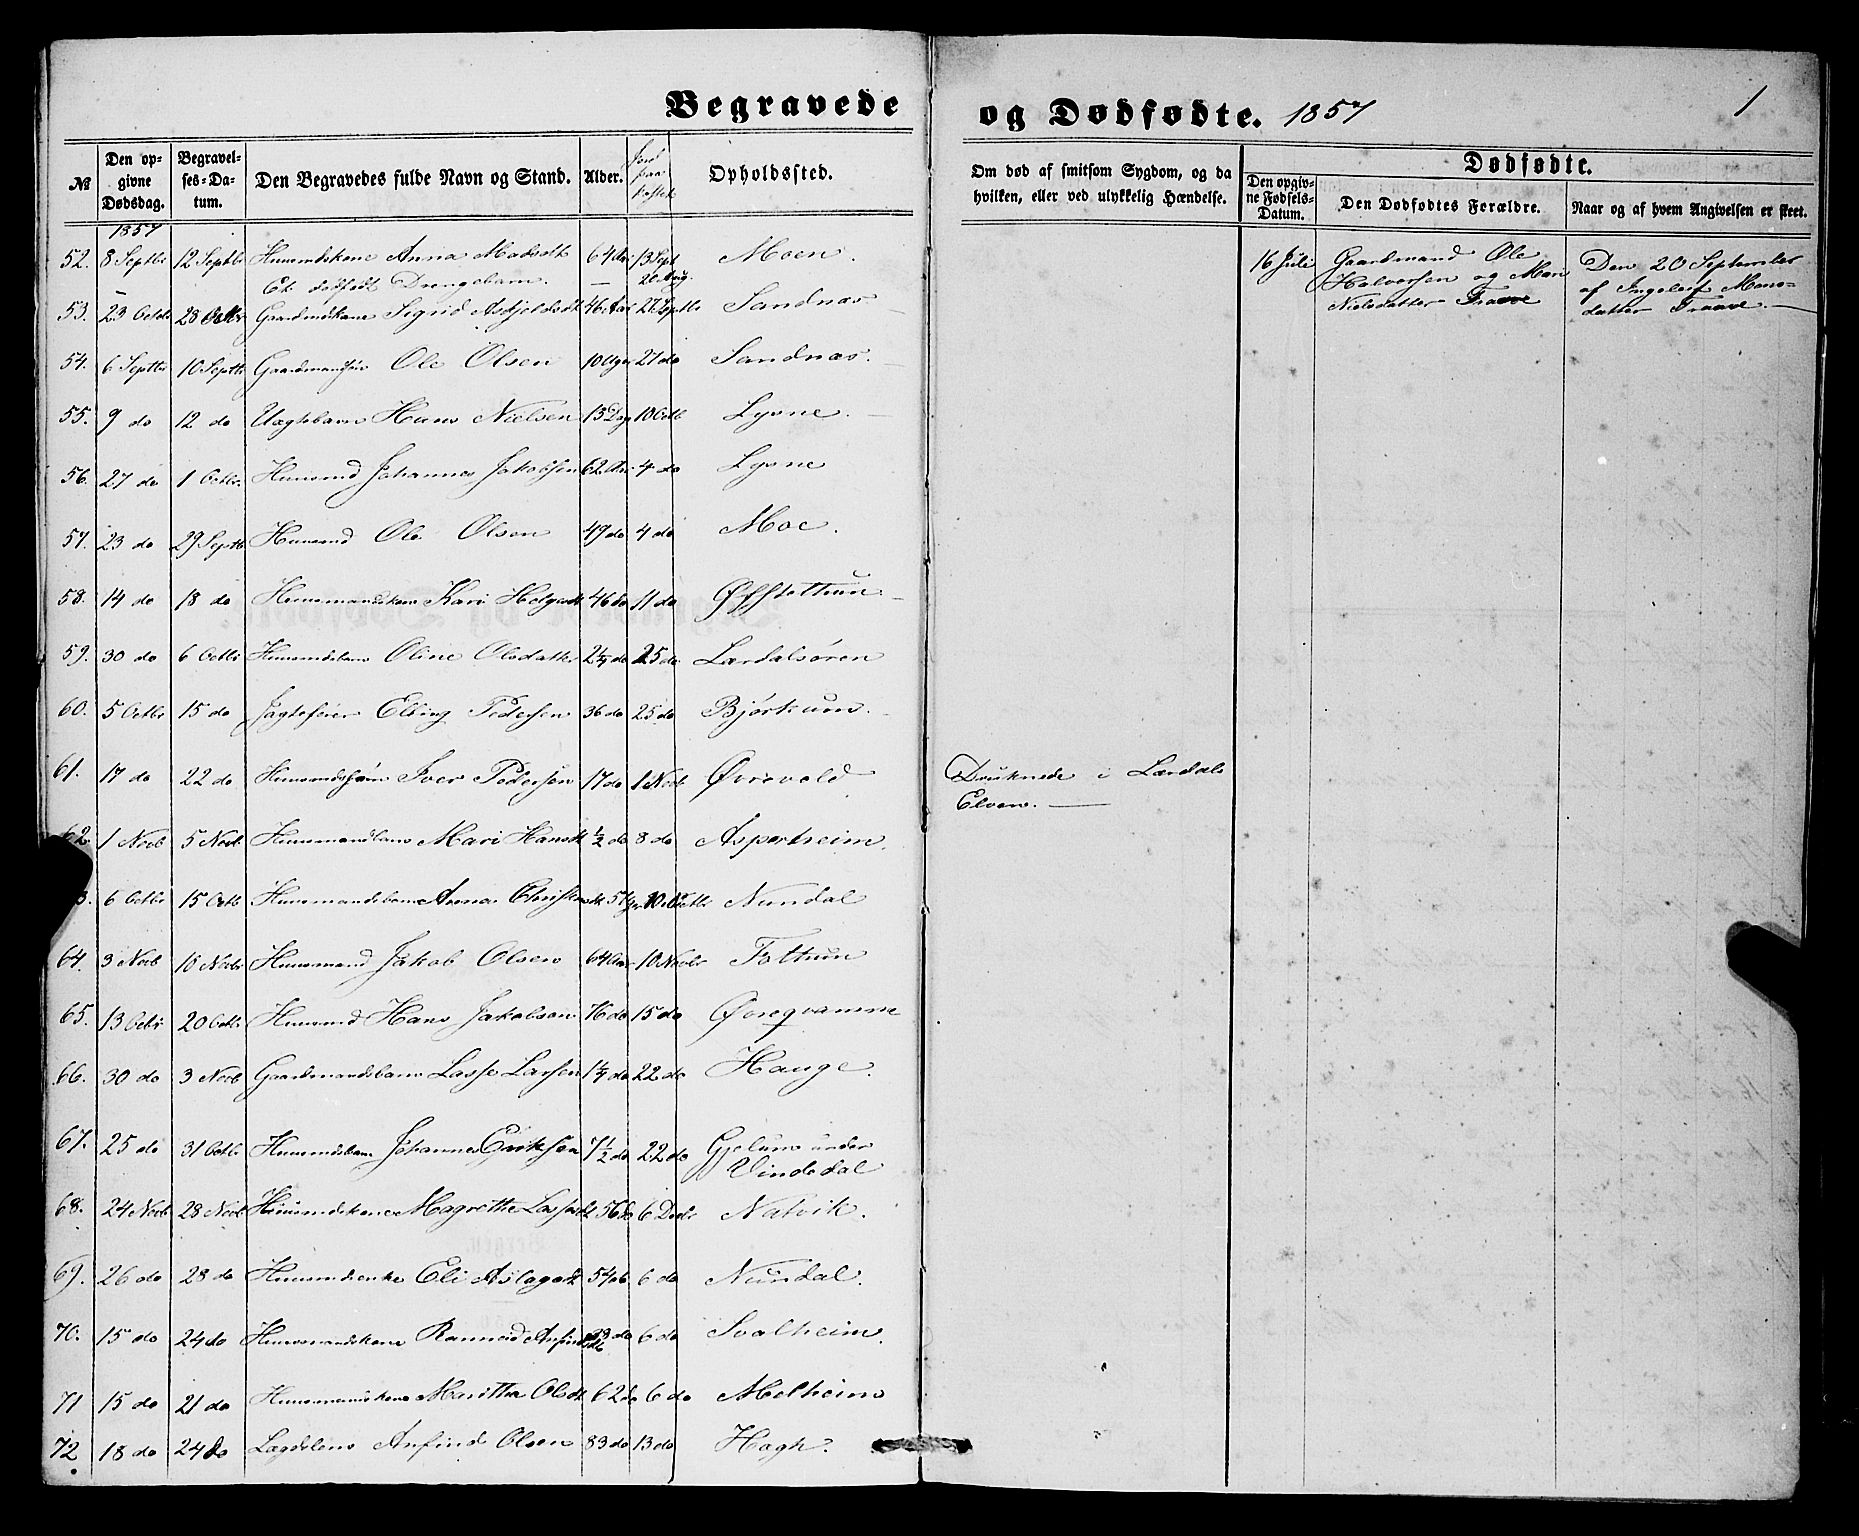 Begravede
og Dødfødte. 1857
1
№
Den opgivne Dødsdag.
Begravelses-Datum.
Den Begravedes fulde Navn og Stand.
Alder.
Jord paakastet
Opholdssted.
Om død af smitsom Sygdom, og da hvilken, eller ved ulykkelig Hændelse.
Dødfødte.
Den opgivne Fødsels-Datum.
Den Dødfødtes Forældre.
Naar og af hvem Angivelsen er skeet.
1857
52. 8 Septbr 12 Septbr Huusmdskone Anna Madsdtr 64 Aar 13 Sept Moen
Et dødfødt Drengebarn. — 20 Aug.
16 Juli Gaardmand Ole Halvorsen og Mari Nielsdatter Traave
Den 20 September af Ingeleif Monsdatter Traave.
53. 23 Octbr 28 Octbr Gaardmdskone Sigrid Askjeldsdtr 46 Aar 27 Septbr Sandnæs
54. 6 Septbr 10 Septbr Gaardmandssøn Ole Olsen 10 Uger 27 do Sandnæs.
55. 9 do 12 do Uægtebarn Hans Nielsen 13 Dag 10 Octb Lysne.
56. 27 do 1 Octbr. Huusmd Johannes Jakobsen 62 Aar 4 do Lysne
57. 23 do 29 Septb Huusmd Ole Olsen 49 do 4 do Moe.
58. 14 do 18 do Huusmandskone Kari Helgesdtr 46 do 11 do Øffstettun
59. 30 do 6 Octbr Huusmdsbarn Oline Olsdatter 2¼ do 25 do Lærdalsøren
60. 5 Octbr 15 do Jagtefører Elling Pedersen 36 do 25 do Bjørkum.
61. 17 do 22 do Huusmdssøn Iver Pedersen 17 do 1 Novb Øvrevold
Druknede i Lærdals Elven.
62 1 Novb 5 Novb. Huusmandsbarn Mari Hansdtr ½ do 8 do Asperheim.
3. 6 Octbr 15 Octb Huusmandsbarn Anna Nundal
64. 3 Novb 10 Novbr Huusmand Jakob Olsen 64 Aar 10 Novbr Tottun
65. 13 Octbr 20 Octbr Huusmd Hans Jakobsen 76 do 15 do Øvreqvamme
66. 30 do 3 Novb Gaardmandsbarn Lasse Larsen 1¼ do 22 do Hauge.
67. 25 do 31 Octbr Huusmdsbarn Johannes Eriksen 7½ do 22 do Gjelum under Vindedal
68. 24 Novb 28 Novb Huusmdskone Magrethe Lassesdtr 56 do 6 Decbr Natvik.
69. 26 do 28 do Huusmdsenke Eli Aslagsdtr 54 do 6 do Nundal.
70. 15 do 24 do Huusmandskone Ranneid Anfindsdtr 33 do 6 do Svalheim.
71 15 do 21 do Huusmandskone Maritha Olsdtr 62 do 6 do Melheim
72. 18 do 24 do Lægdslem Anfind Olsen 83 do 13 do Hagh.